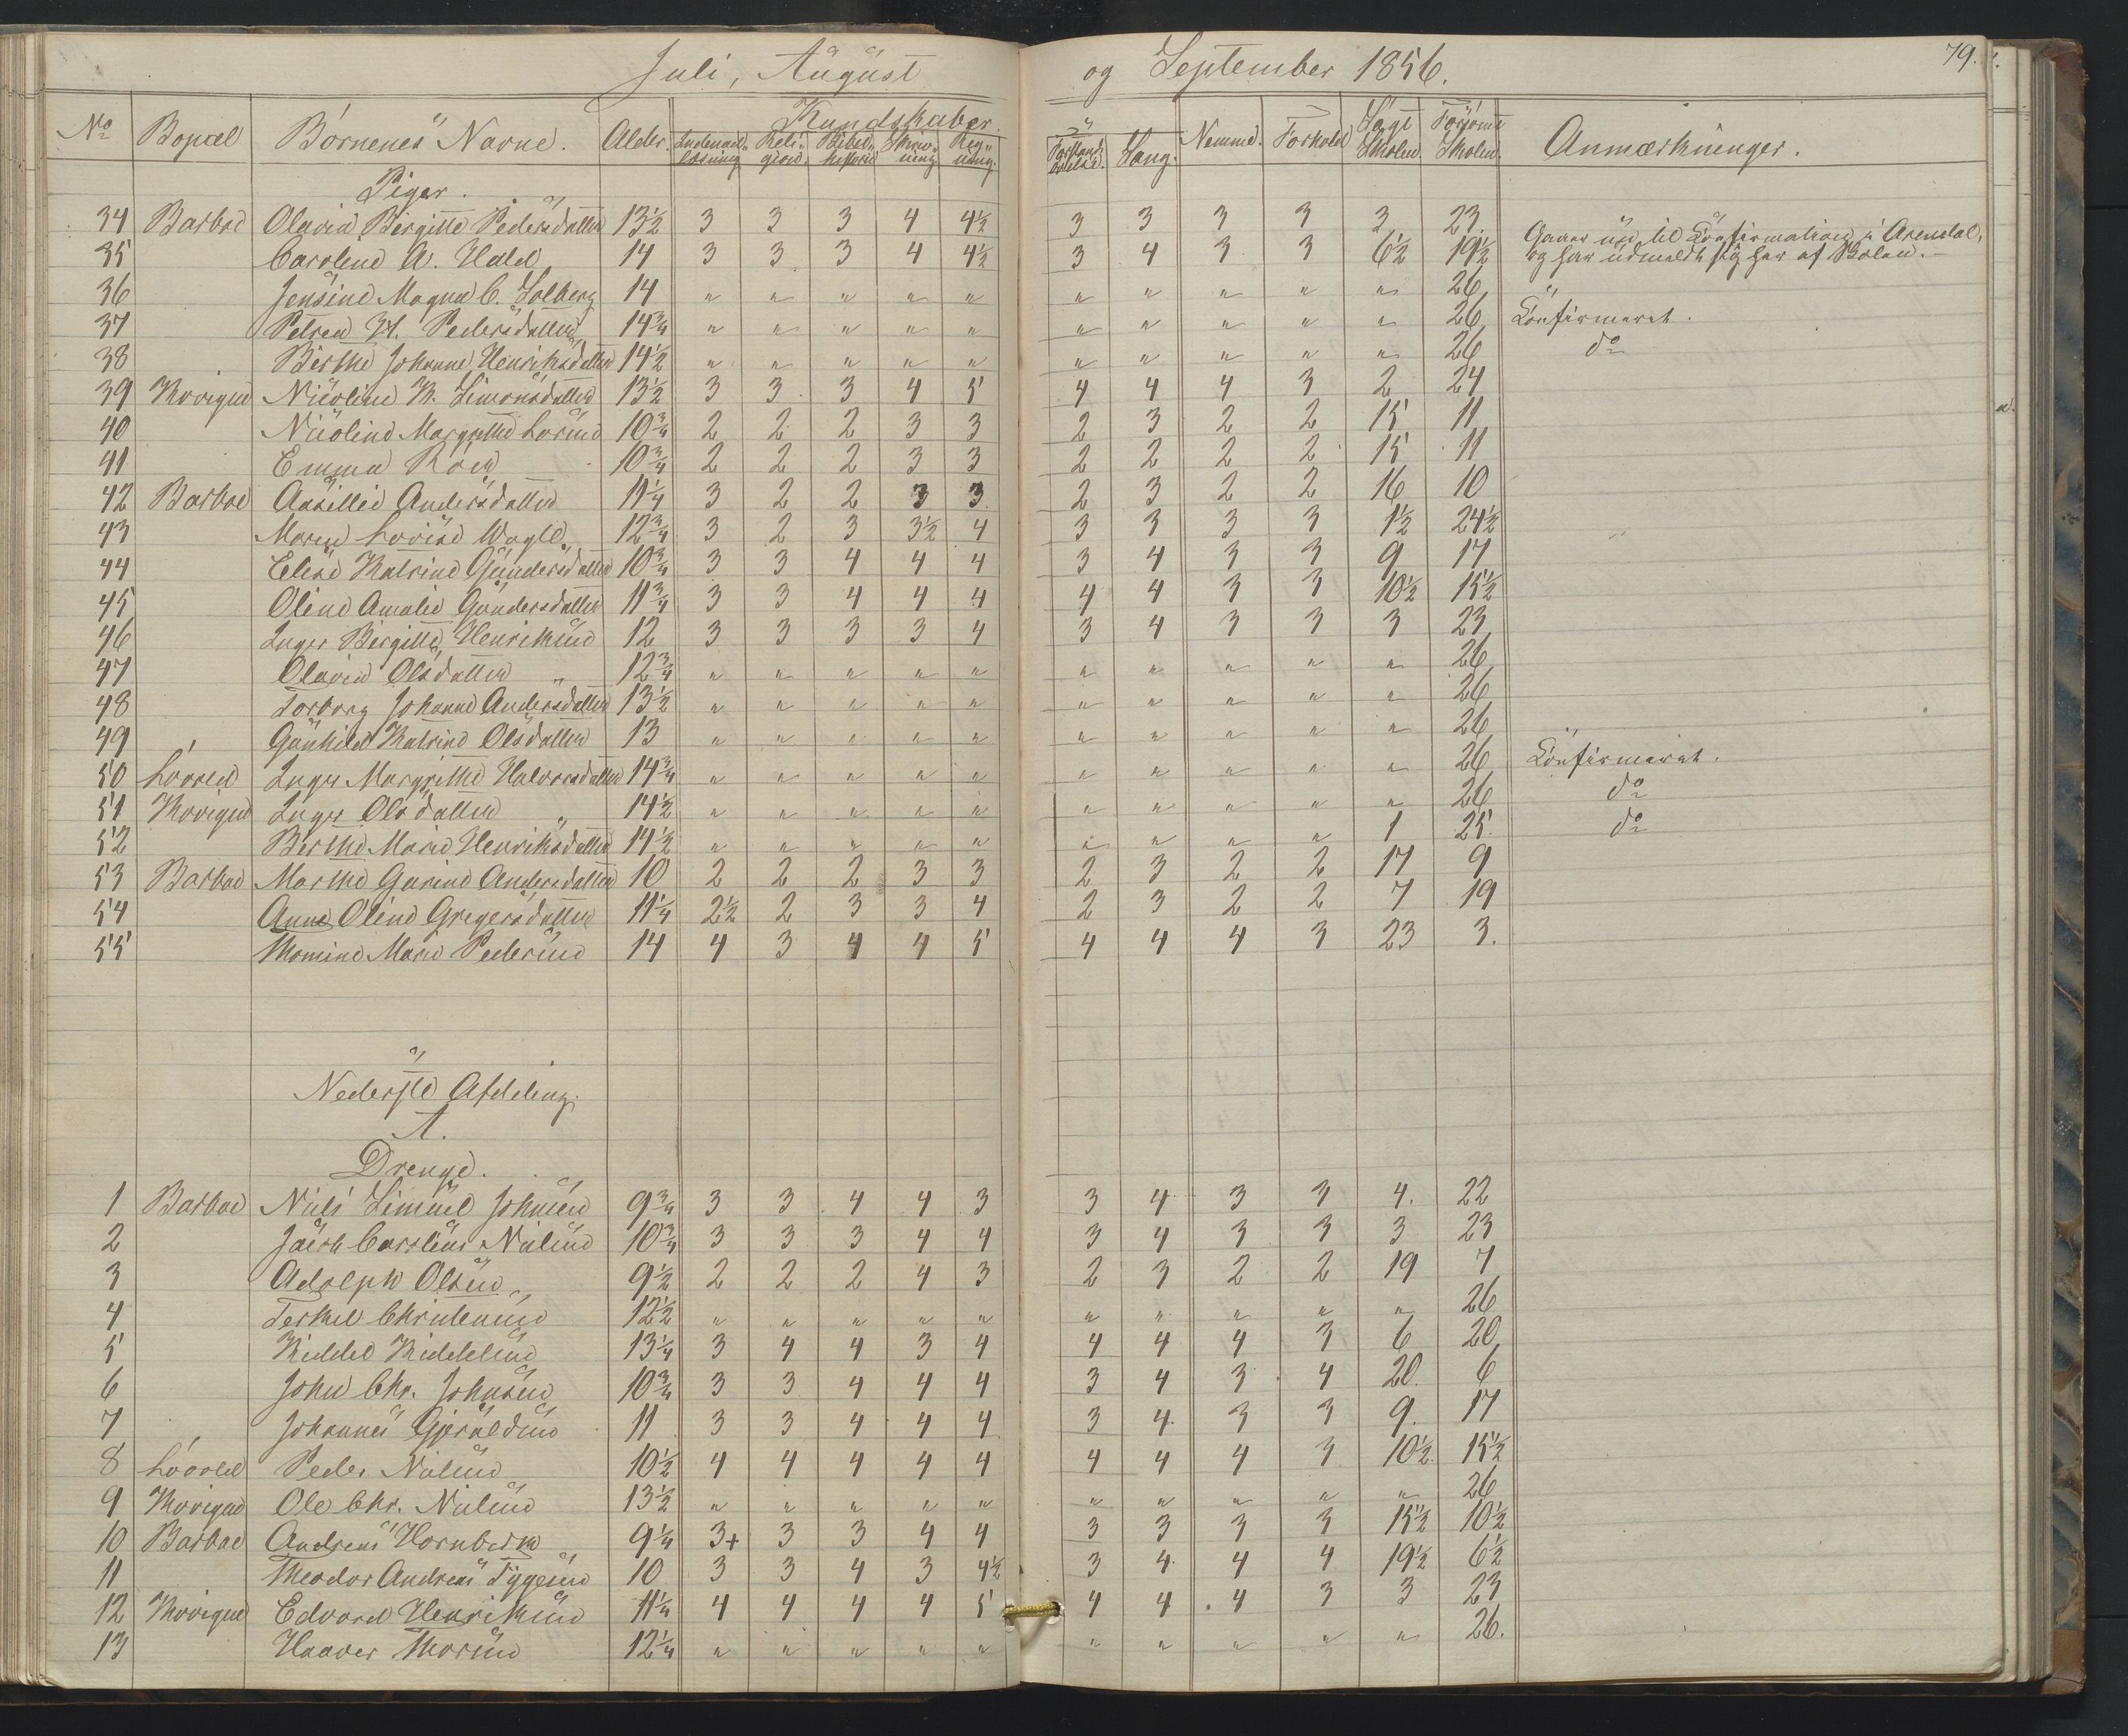 Juli, August og September 1856. 79.
No Bopæl Børnenes Navne. Alder. Kundskaber. Indenadlæsning Religion Bibelhistorie Skrivning Regning. Forstandsøvelse. Sang. Nemme. Forhold Søgt Skolen. Forsømt Skolen. Anmærkninger.
Piger.
34 Barboe Olavia Birgitte Pedersdatter 13½ 3 3 3 4 4½ 3 3 3 3 3 23.
35 Caroline A. Hald 14 3 3 3 4 4½ 3 4 3 3 6½ 19½ Gaaer nu til Confirmation i Arendal,
og har udmeldt sig her af Skolen.
36 Jensine Magna C. Solberg 14 " " " " " " " " " " 26
37 Petrea H. Pedersdatter 14¾ " " " " " " " " " " 26 Confirmeret.
38 Birthe Johanne Henriksdatter 14½ " " " " " " " " " " 26 do
39 Nicoline M. Simonsdatter 13½ 3 3 3 4 5 4 4 4 3 2 24
40 Nicoline Margrethe 10¾ 2 2 2 3 3 2 3 2 2 15 11
41 Emma 10¾ 2 2 2 3 3 2 2 2 2 15 11
42 Barboe Aasillie Andersdatter 11¼ 3 2 2 3 3 2 3 2 2 16 10
43 Maren Lovise Wogle 12¾ 3 2 3 3½ 4 3 3 3 3 1½ 24½
44 Elise Katrine Gundersdatter 10¾ 3 3 4 4 4 3 4 3 3 9 17
45 Oline Amalie Gundersdatter 11¾ 3 3 4 4 4 4 4 3 3 10½ 15½
46 Inger Birgitte Henriksen 12 3 3 3 3 4 3 4 3 3 3 23
47 Olavia Olsdatter 12¾ " " " " " " " " " " 26
48 Torborg Johanne Andersdatter 13½ " " " " " " " " " " 26
49 Gunhild Katrine Olsdatter 13 " " " " " " " " " " 26
50 Inger Margrethe Halvorsdatter 14¾ " " " " " " " " " " 26 Confirmeret.
51 Inger Olsdatter 14½ " " " " " " " " " " 26 do
52 Birthe Marie Henriksdatter 14½ " " " " " " " " " 1 25. do
53 Barboe Marthe Gurine Andersdatter 10 2 2 2 3 3 2 3 2 2 17 9
54 Anne Oline Gregersdatter 11¼ 2½ 2 3 3 4 2 3 2 2 7 19
55 Thomine Marie Pedersen 14 4 3 4 4 5 4 4 4 3 23 3.
Nederste Afdeling.
A.
Drenge.
1 Barboe Niels Simuel Johnsen 9¾ 3 3 4 4 3 3 4 3 3 4. 22
2 Jacob Carolius Nielsen 10¾ 3 3 3 4 4 3 4 3 3 3 23
3 Adolph Olsen 9½ 2 2 2 4 3 2 3 2 2 19 7
4 Terkel Christensen 12½ " " " " " " " " " " 26
5 Kiddel Kiddelsen 13¼ 3 4 4 3 4 4 4 4 3 6 20
6 John Chr. Johnsen 10¾ 3 3 4 4 4 3 4 3 4 20. 6
7 Johannes Gjeruldsen 11 3 3 4 4 4 3 4. 3 3 9. 17
8 Peder Nielsen 10½ 4 4 4 4 4 4 4 4 3 10½ 15½
9 Ole Chr. Nielsen 13½ " " " " " " " " " " 26
10 Barboe Andreas Hornbech 9¼ 3+ 3 3 4 4 3 3 3 3 15½ 10½
11 Theodor Andreas Tygesen 10 3 3 4 3 4½ 3 4. 4 4 19½ 6½
12 Edvard Henriksen 11¼ 4 4 4 4 5 4 4 4 3 3 23
13 Haaver Thorsen 12¼ " " " " " " " " " " 26.